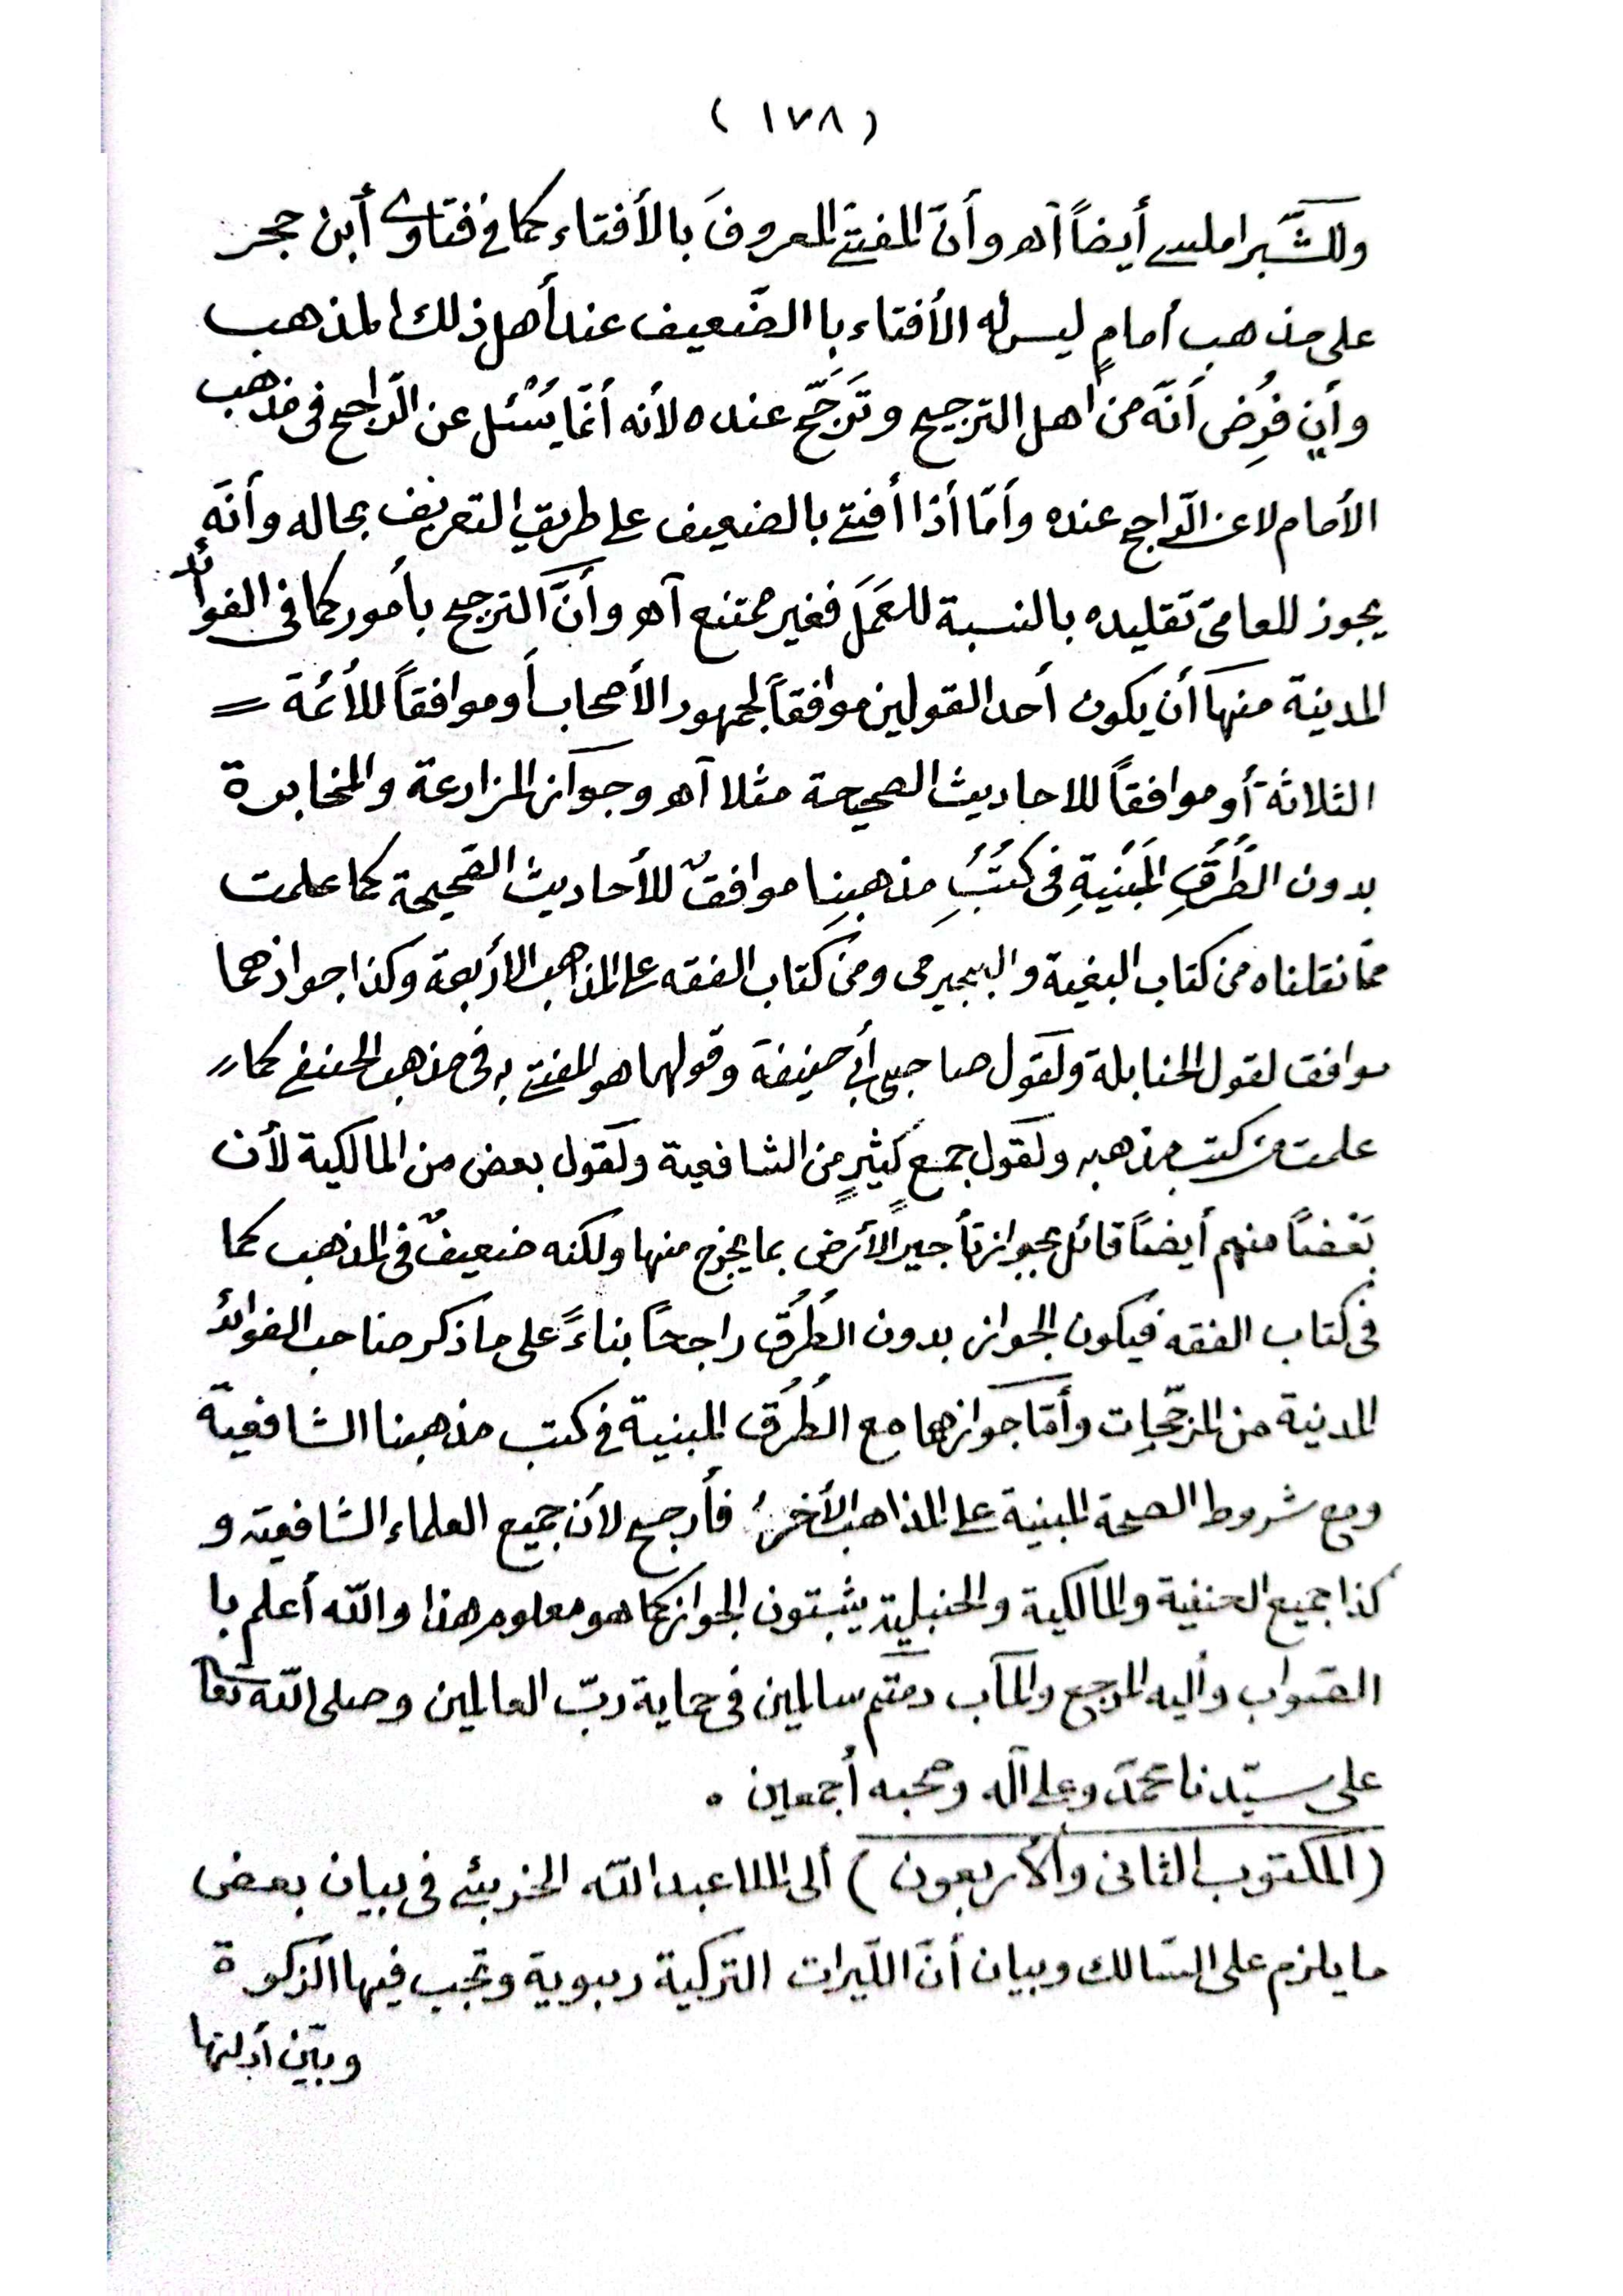 ( ١٧٨ )
وللشَّبراملسي أيضاً آهـ وأنّ المفتي المعروفَ بالأفتاء كما في فتاوى أبن حجر
على مذهب أمامٍ ليس له الأفتاء با الضّعيف عند أهل ذلك المذهب
وأن فُرِض أنّه من اهل الترجيح وتَرَجَّح عنده لأنه أنّما يُسْئل عن الرّاجح فى مذهب
الأمام لا عن الرّاجح عنده وأمّا أذا أفتى بالضعيف على طريق التعريف بحاله وأنّه
يجوز للعامىّ تقليده بالنسبة للعَمَل فغير ممتنع آهـ وأنَّ الترجيح بأمور كما فى الفوائد
المدنية منها أن يكون أحد القولين موافقاً لجمهور الأصحاب أو موافقاً للأئمة =
الثلاثة أو موافقاً للاحاديث الصحيحة مثلا آهـ وجواز المزارعة والمخابرة
بدون الطُرُقِ المَبْنيةِ فى كتُبِ مذهبِنا موافقٌ للأحاديث الصّحيحة كما علمت
ممّا نقلناه من كتاب البغية والبجيرمى ومن كتاب الفقه على المذاهب الأربعة وكذا جوازهما
موافق لقول الحنابلة ولقول صاحبي أبي حنيفة وقولهما هو المفتى به فى مذهب الحنفي كما〃
علمت من كتب مذهبه ولقول جمع كثيرٍ من الشافعية ولقول بعض من المالكية لأن
بَعْضاً منهم أيضاً قائل بجواز تأجير الأرض بما يخرج منها ولكنه ضعيفٌ فى المذهب كما
فى كتاب الفقه فيكون الجواز بدون الطُرُق راجحاً بناءً على ما ذكر صاحب الفوائد
المدنية من المرّجحات وأمّا جوازهما مع الطُرُق المبنية في كتب مذهبنا الشافعيّة
ومع شروط الصحة المبنية على المذاهب الأُخر فأرجح لأن جميع العلماء الشافعية و
كذا جميع الحنفية والمالكية والحنبلية يثبتون الجواز كما هو معلوم هذا والله أعلم با
الصّواب وأليه المرجع والمآب دمتم سالمين فى حماية ربّ العالمين وصلى الله تعالى
على سيّدنا محمّد وعلى آله وصحبه أجمعين ٠
(المكتوب الثانى والأربعون) ألى الملا عبد الله الخزبئي فى بيان بعض
ما يلزم على السّالك وبيان أنّ اللّيرات التركية ربوية وتجب فيها الزكوة
وبيّن أدلتها